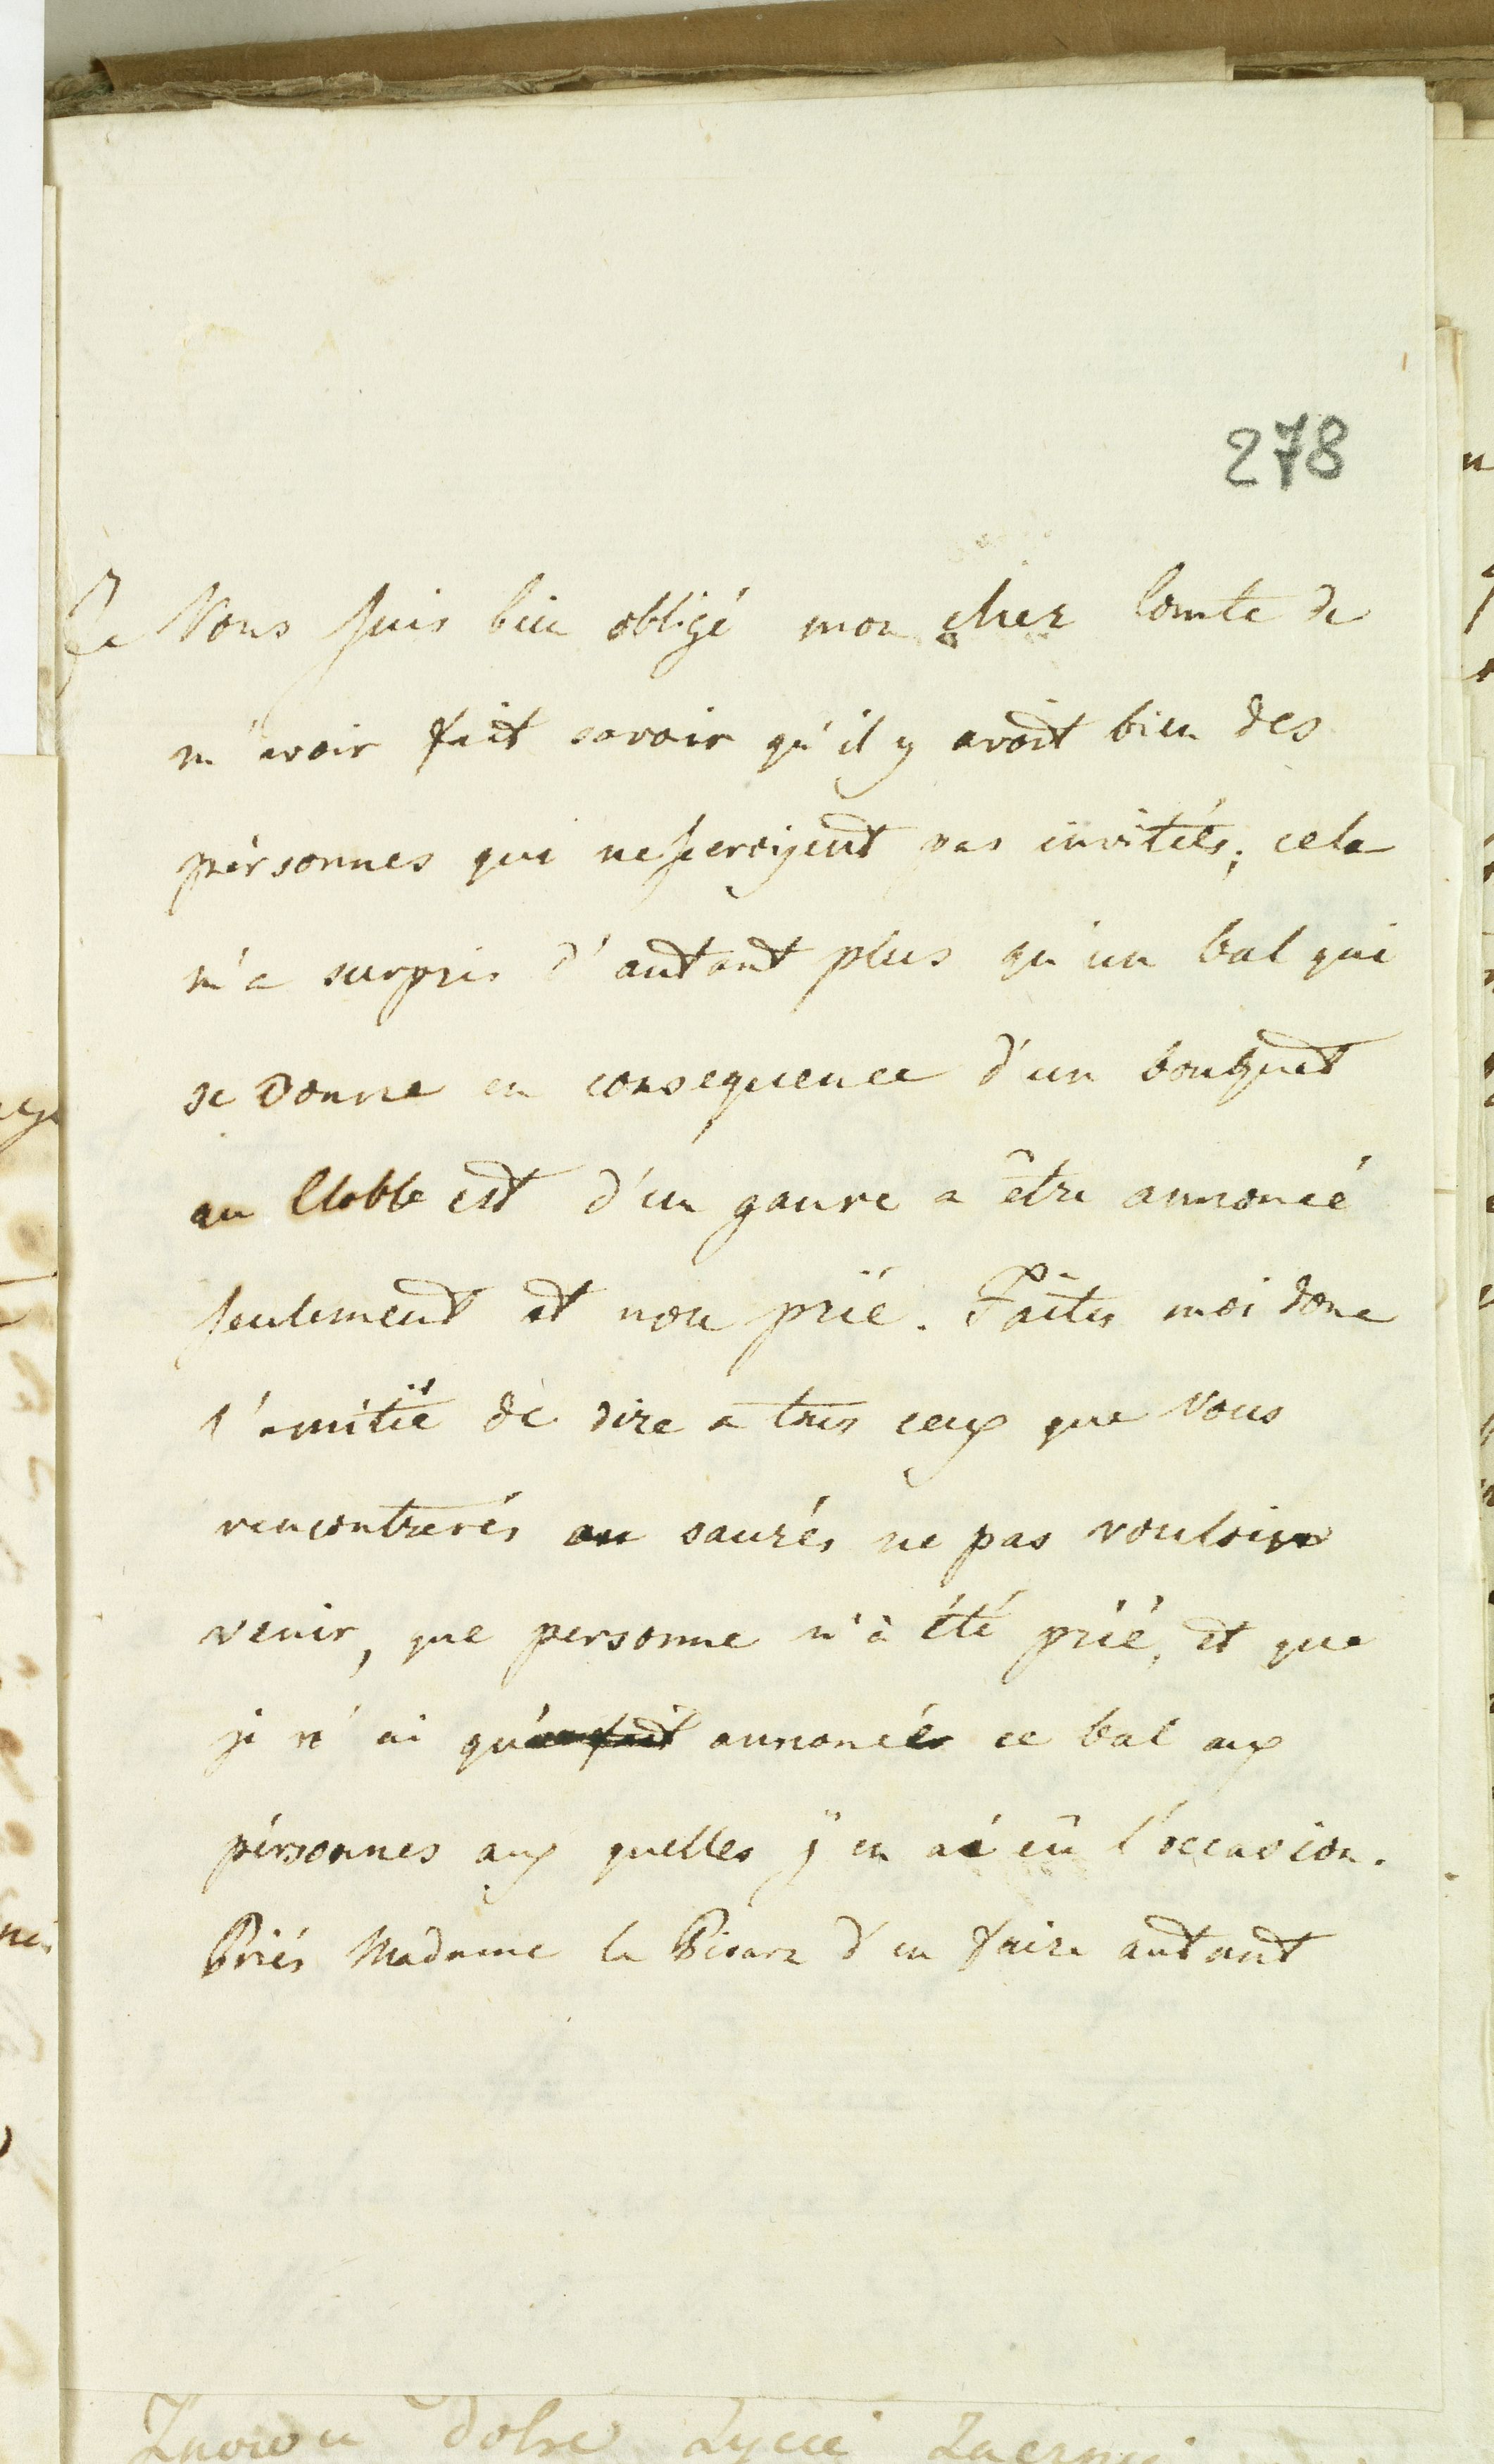 278
Je Vous suis bien obligé mon cher Comte de
m'avoir fait savoir qu'il y avoit bien des
pérsonnes qui ne seroyent pas invitéés; cela
m'a surpris d'autant plus qu'un bal qui
se donne en consequence d'un bouquet
au Clobbe est d'un ganre a être annoncé
seulement et non prié. Faites moi donc
l'amitié de dire a tous ceux que Vous
rencontrerés ou saurés ne pas vouloir
venir, que personne n'à été prié, et que
je n'ai qu' annoncér ce bal aux
pérsonnes aux quelles j'en ai eû l'occasion.
Priés Madame la d'en faire autant
dobre